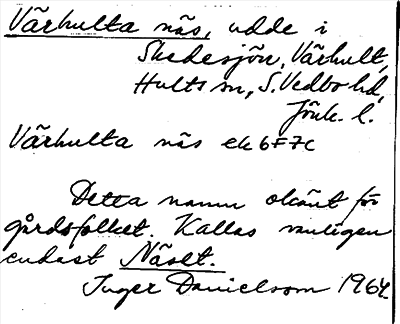 Värhulta näs, udde i
Skedesjön, Värhult,
Hults sn, S. Vedbo hd,
Jönk. l.
Värhulta näs ek 6F7c
Detta namn okänt för
gårdsfolket. Kallas vanligen
endast Näset.
Inger Danielsson 1964.